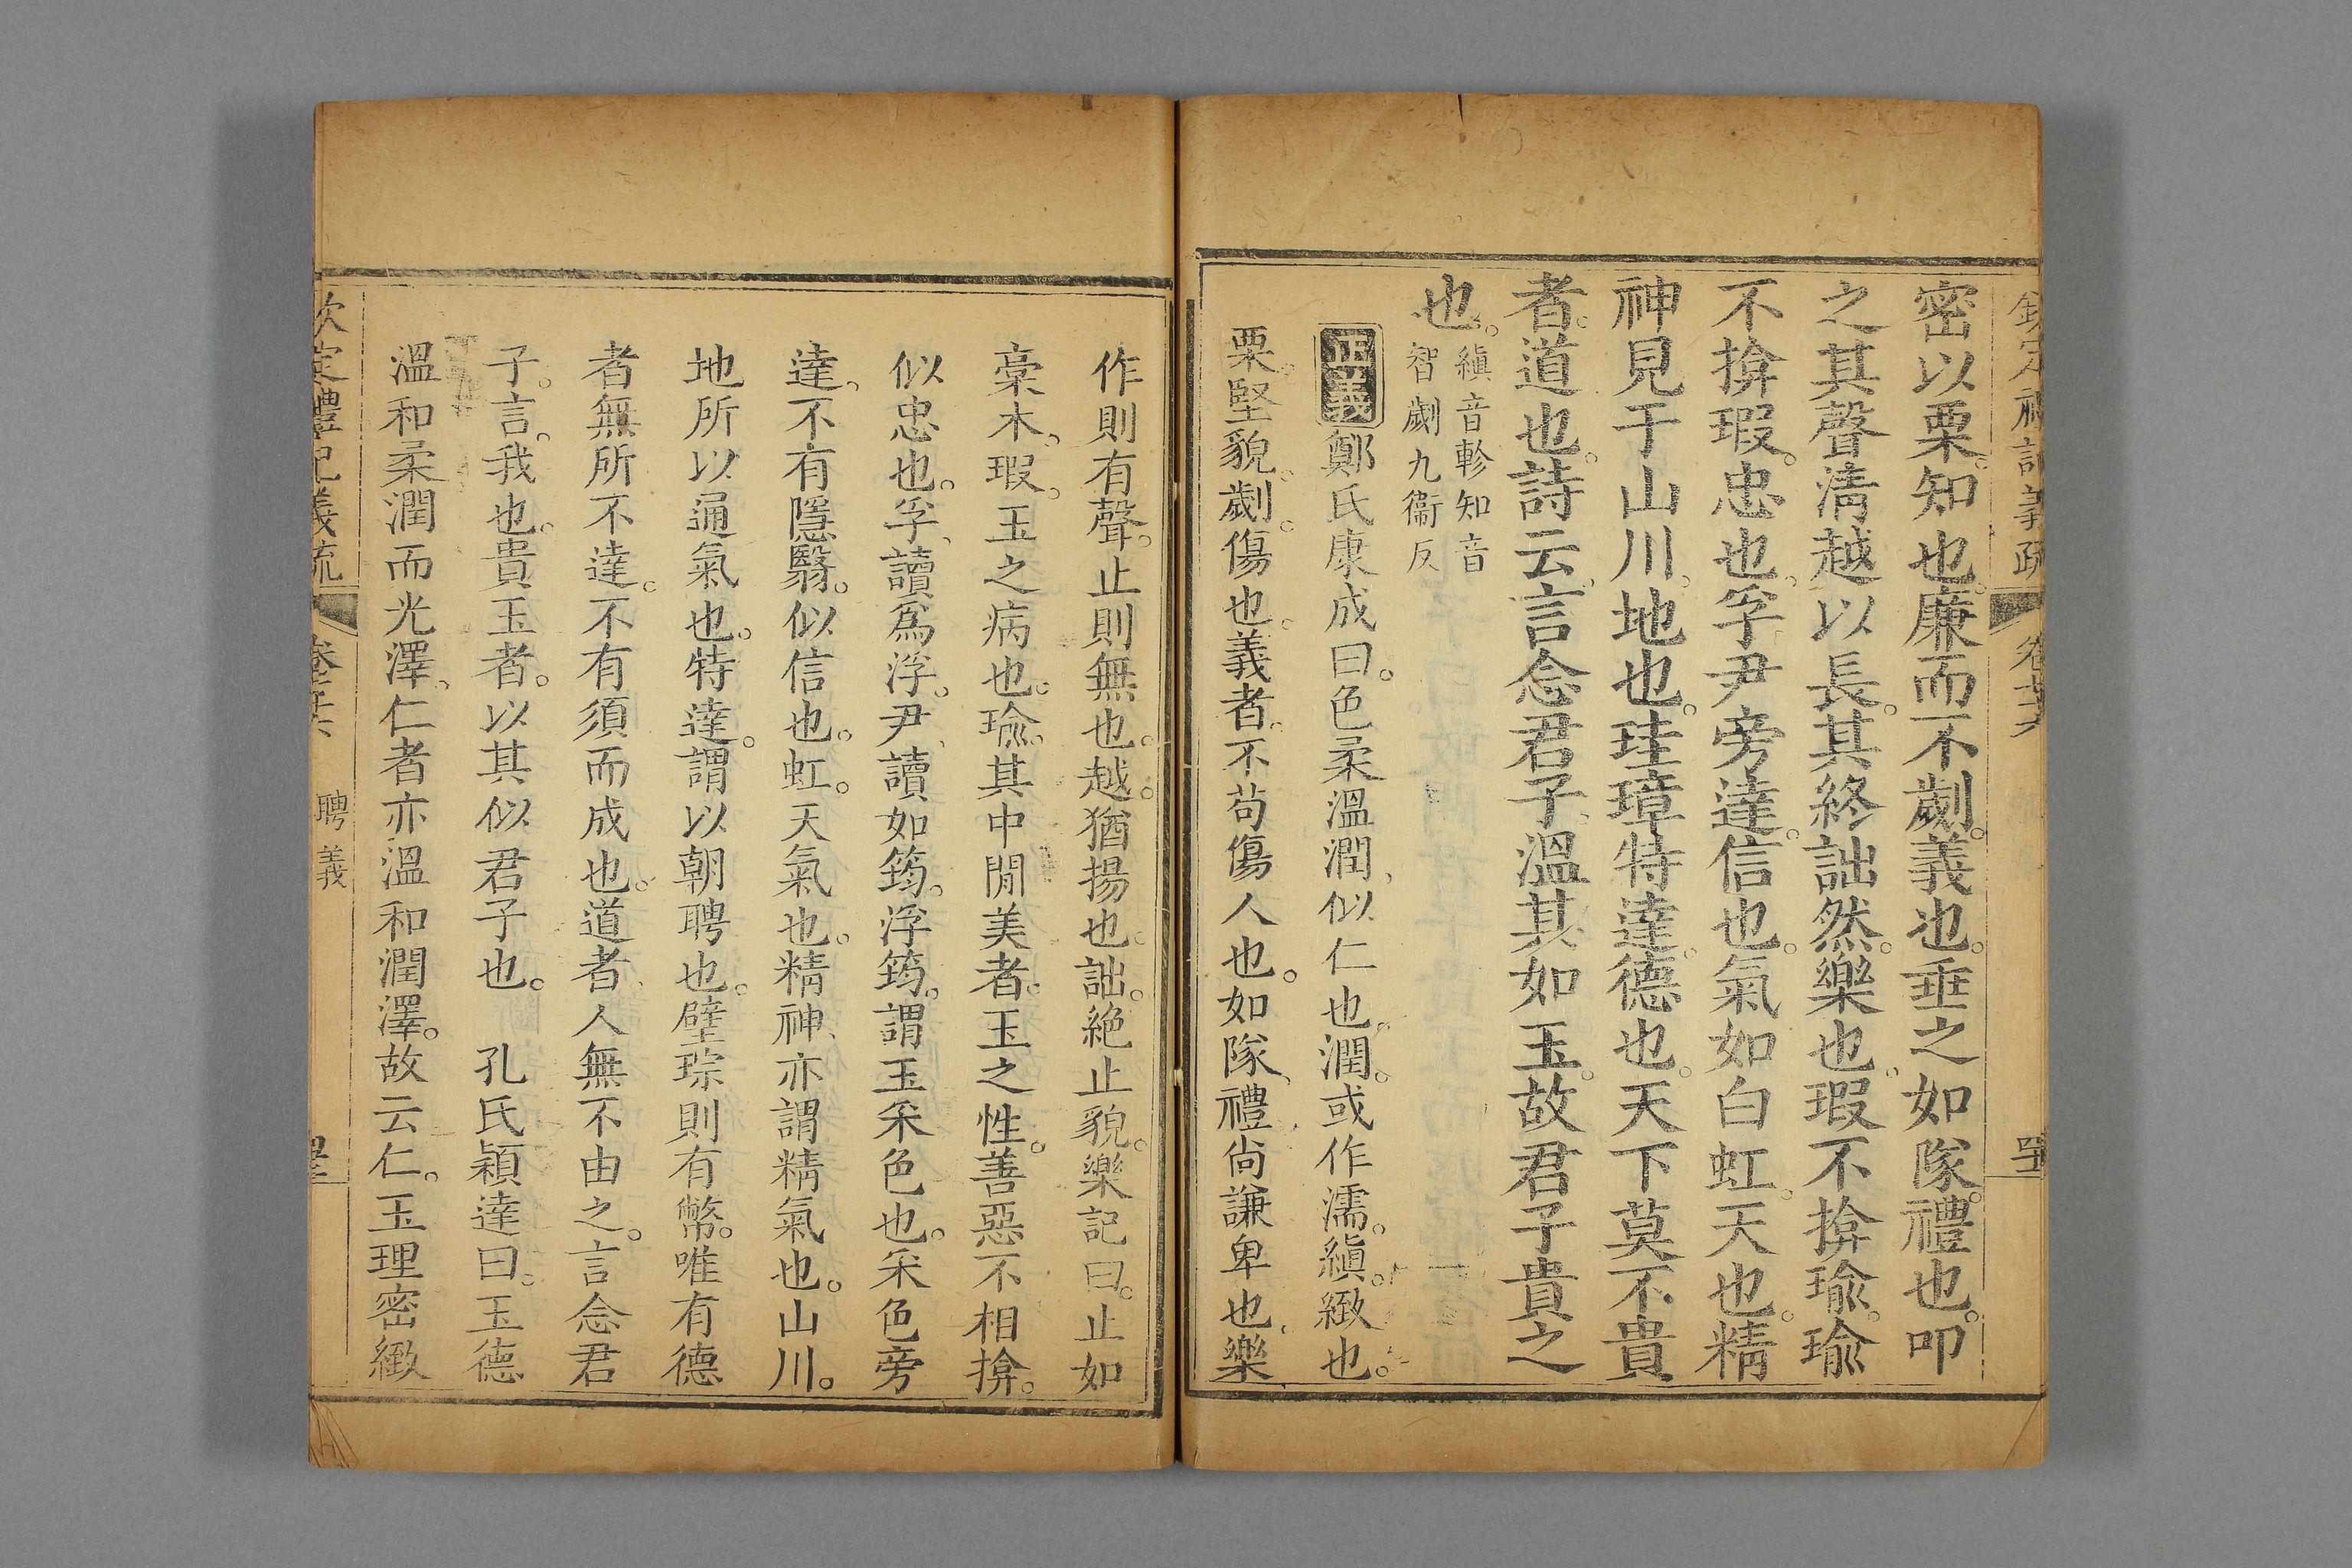 欽定禮記義疏 卷七十六
密以栗。知也。廉而不劌。義也。垂之如隊。禮也。叩
之其聲清越以長。其終詘然。樂也。瑕不揜瑜。瑜
不揜瑕。忠也。孚尹旁達。信也。氣如白虹。天也。精
神見于山川。地也。珪璋特達。德也。天下莫不貴
者。道也。詩云。言念君子。溫其如玉。故君子貴之
也。
縝音軫知音
智劌九衞反
正義 鄭氏康成曰。色柔溫潤、似仁也。潤。或作濡。縝。緻也。
栗。堅貌。劌。傷也。義者。不苟傷人也。如隊、禮尙謙卑也。樂
作則有聲。止則無也。越。猶揚也。詘。絶止貌。樂記曰。止如
槀木。瑕。玉之病也。瑜。其中閒美者。玉之性。善惡不相揜。
似忠也。孚、讀爲浮。尹、讀如筠。浮筠。謂玉采色也。采色旁
達、不有隱翳。似信也。虹。天氣也。精神、亦謂精氣也。山川。
地所以通氣也。特達。謂以朝聘也。璧琮則有幣。唯有德
者無所不達。不有須而成也。道者、人無不由之。言念君
子。言。我也。貴玉者。以其似君子也。 孔氏穎達曰。玉德
溫和柔潤而光澤、仁者亦溫和潤澤。故云仁。玉理密緻
欽定禮記義疏 卷七十六 聘義